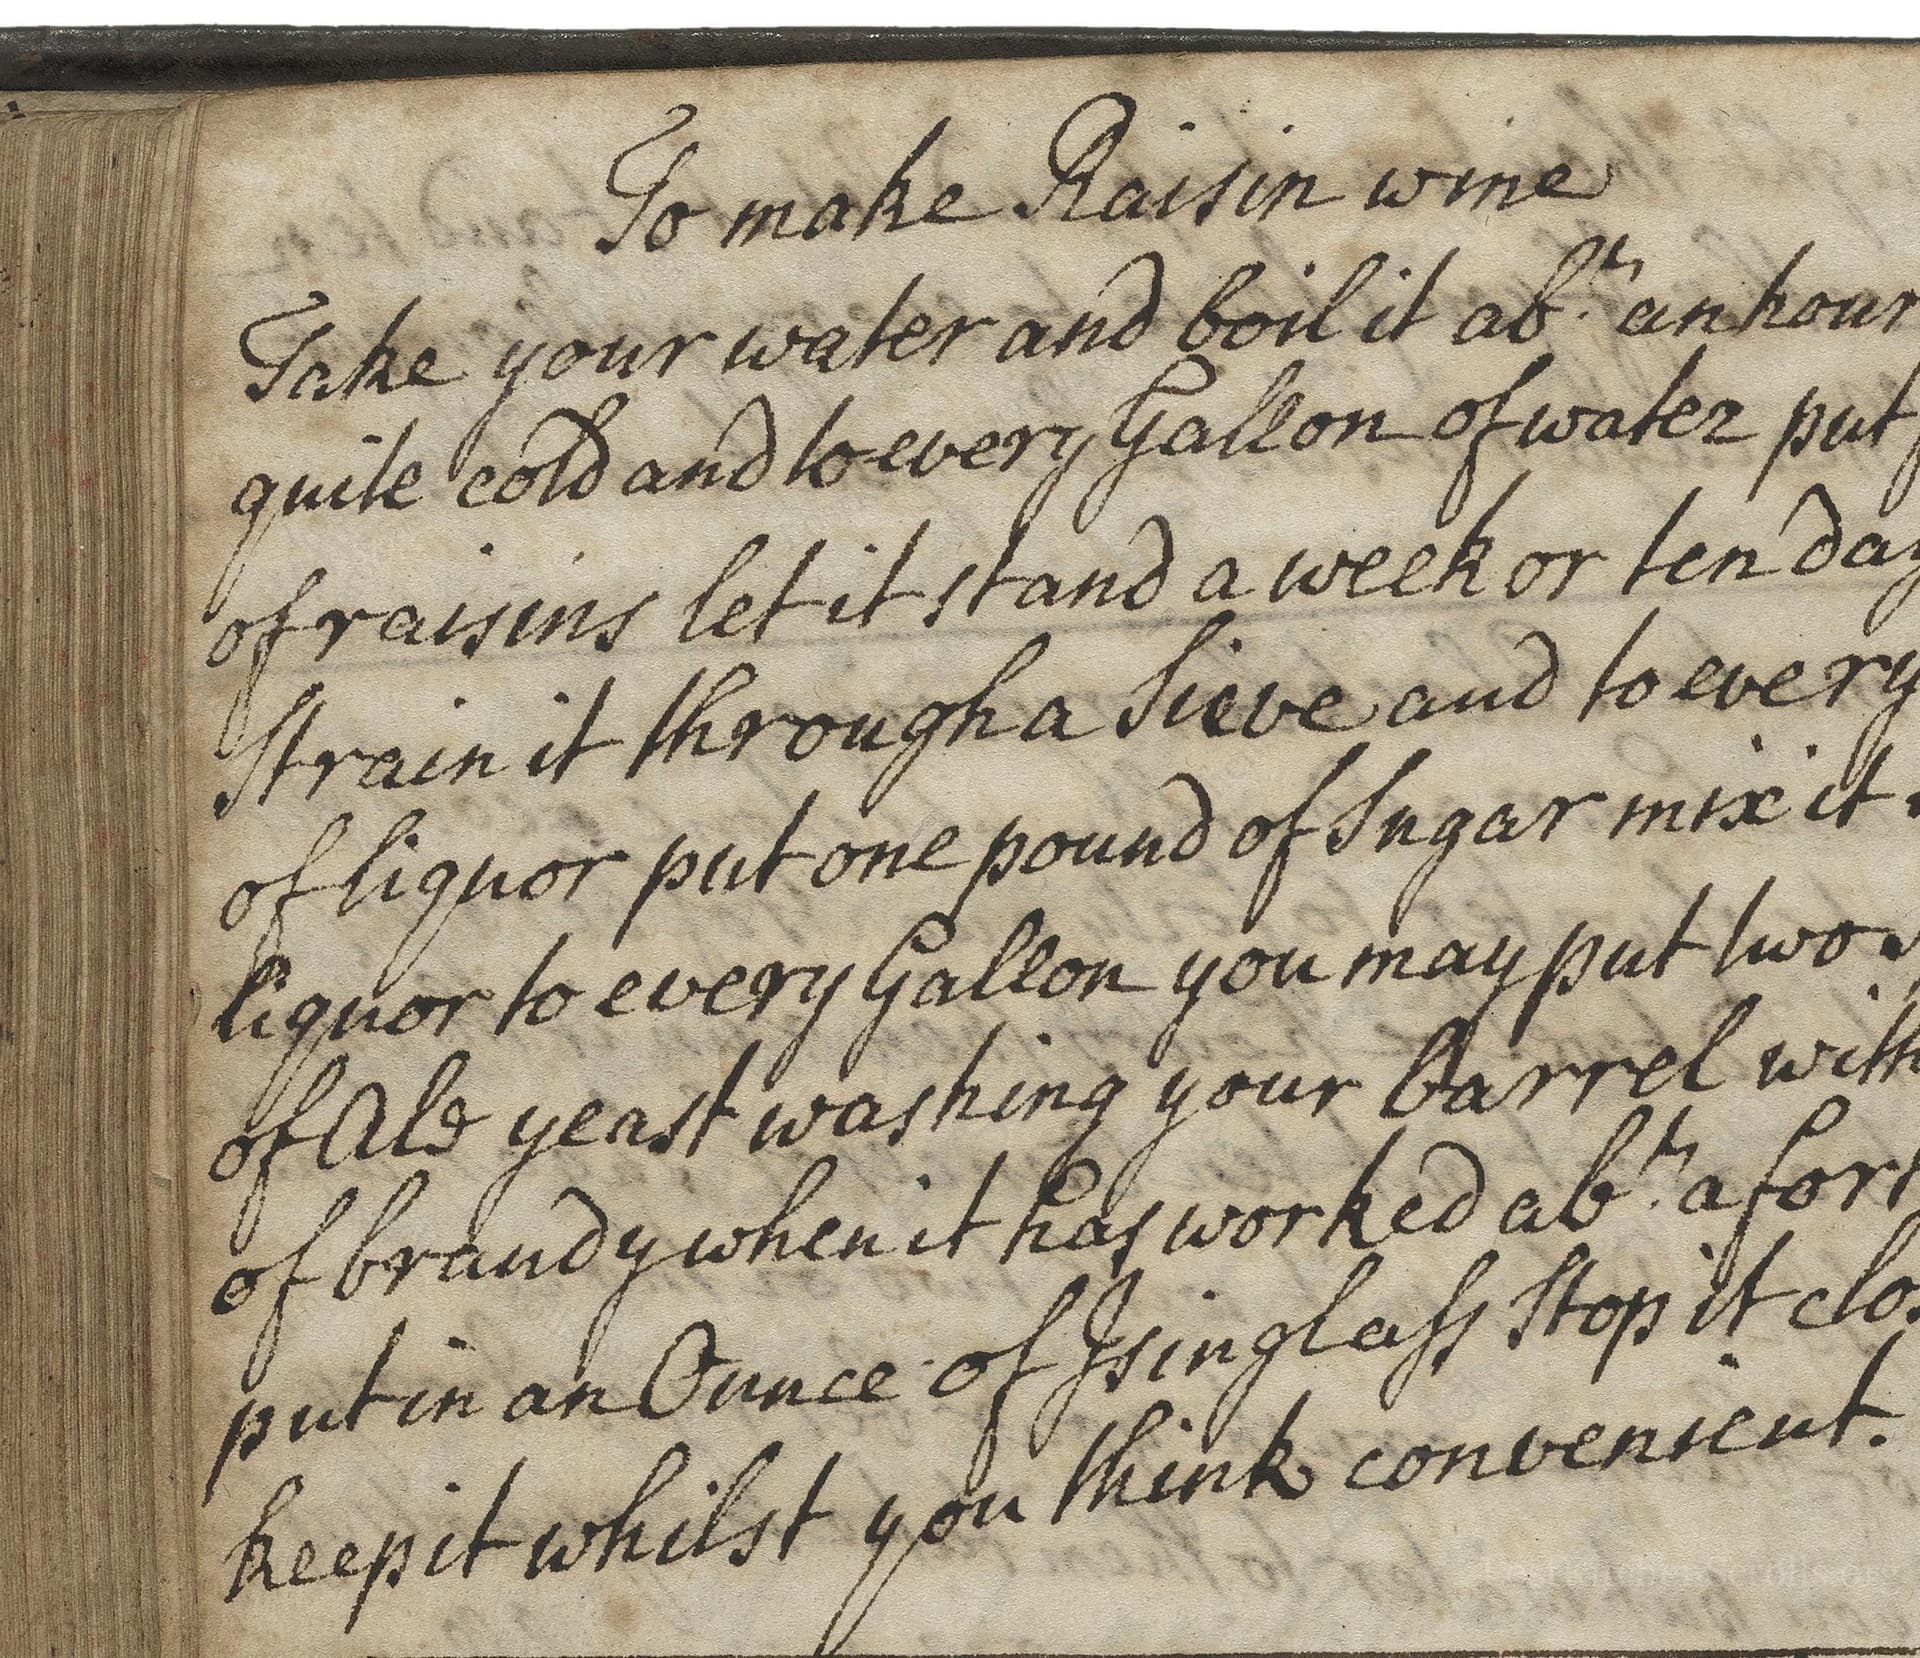 To make Raisin wine
Take your water and boil it abt. an hour
quite cold and to every Gallon of water put
of raisins let it stand a week or ten day
Strain it through a Sieve and to every
of liquor put one pound of Sugar mix it
liquor to every Gallon you may put two
of Ale yeast washing your barrel with
of brandy when it has worked abt. a fort
put in an Ounce of Isinglass Stop it clo
keep it whilst you think convenient.